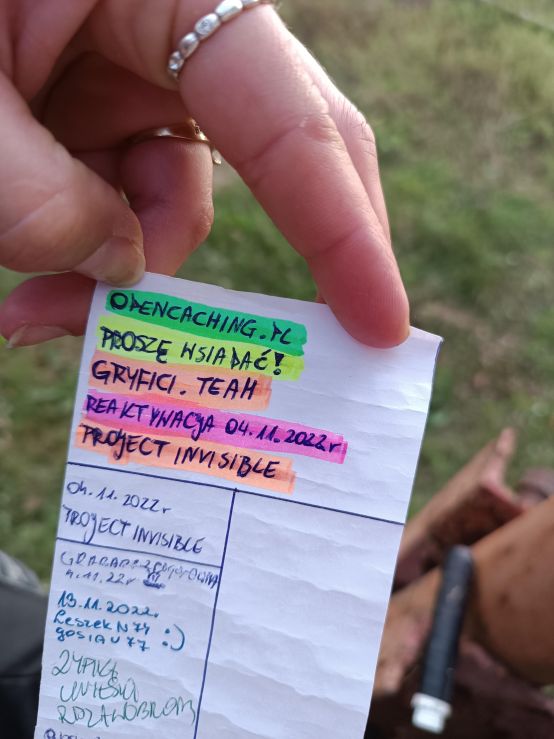 OPENCACHING.PL
PROSZĘ WSIADAĆ!
GRYFICI. TEAM
REAKTYWACJA 04.11.2022r
PROJECT INVISIBLE
04.11.2022r
PROJECT INVISIBLE
4.11.22r
13.11.2022r
Leszek N77
gosia v77 :)